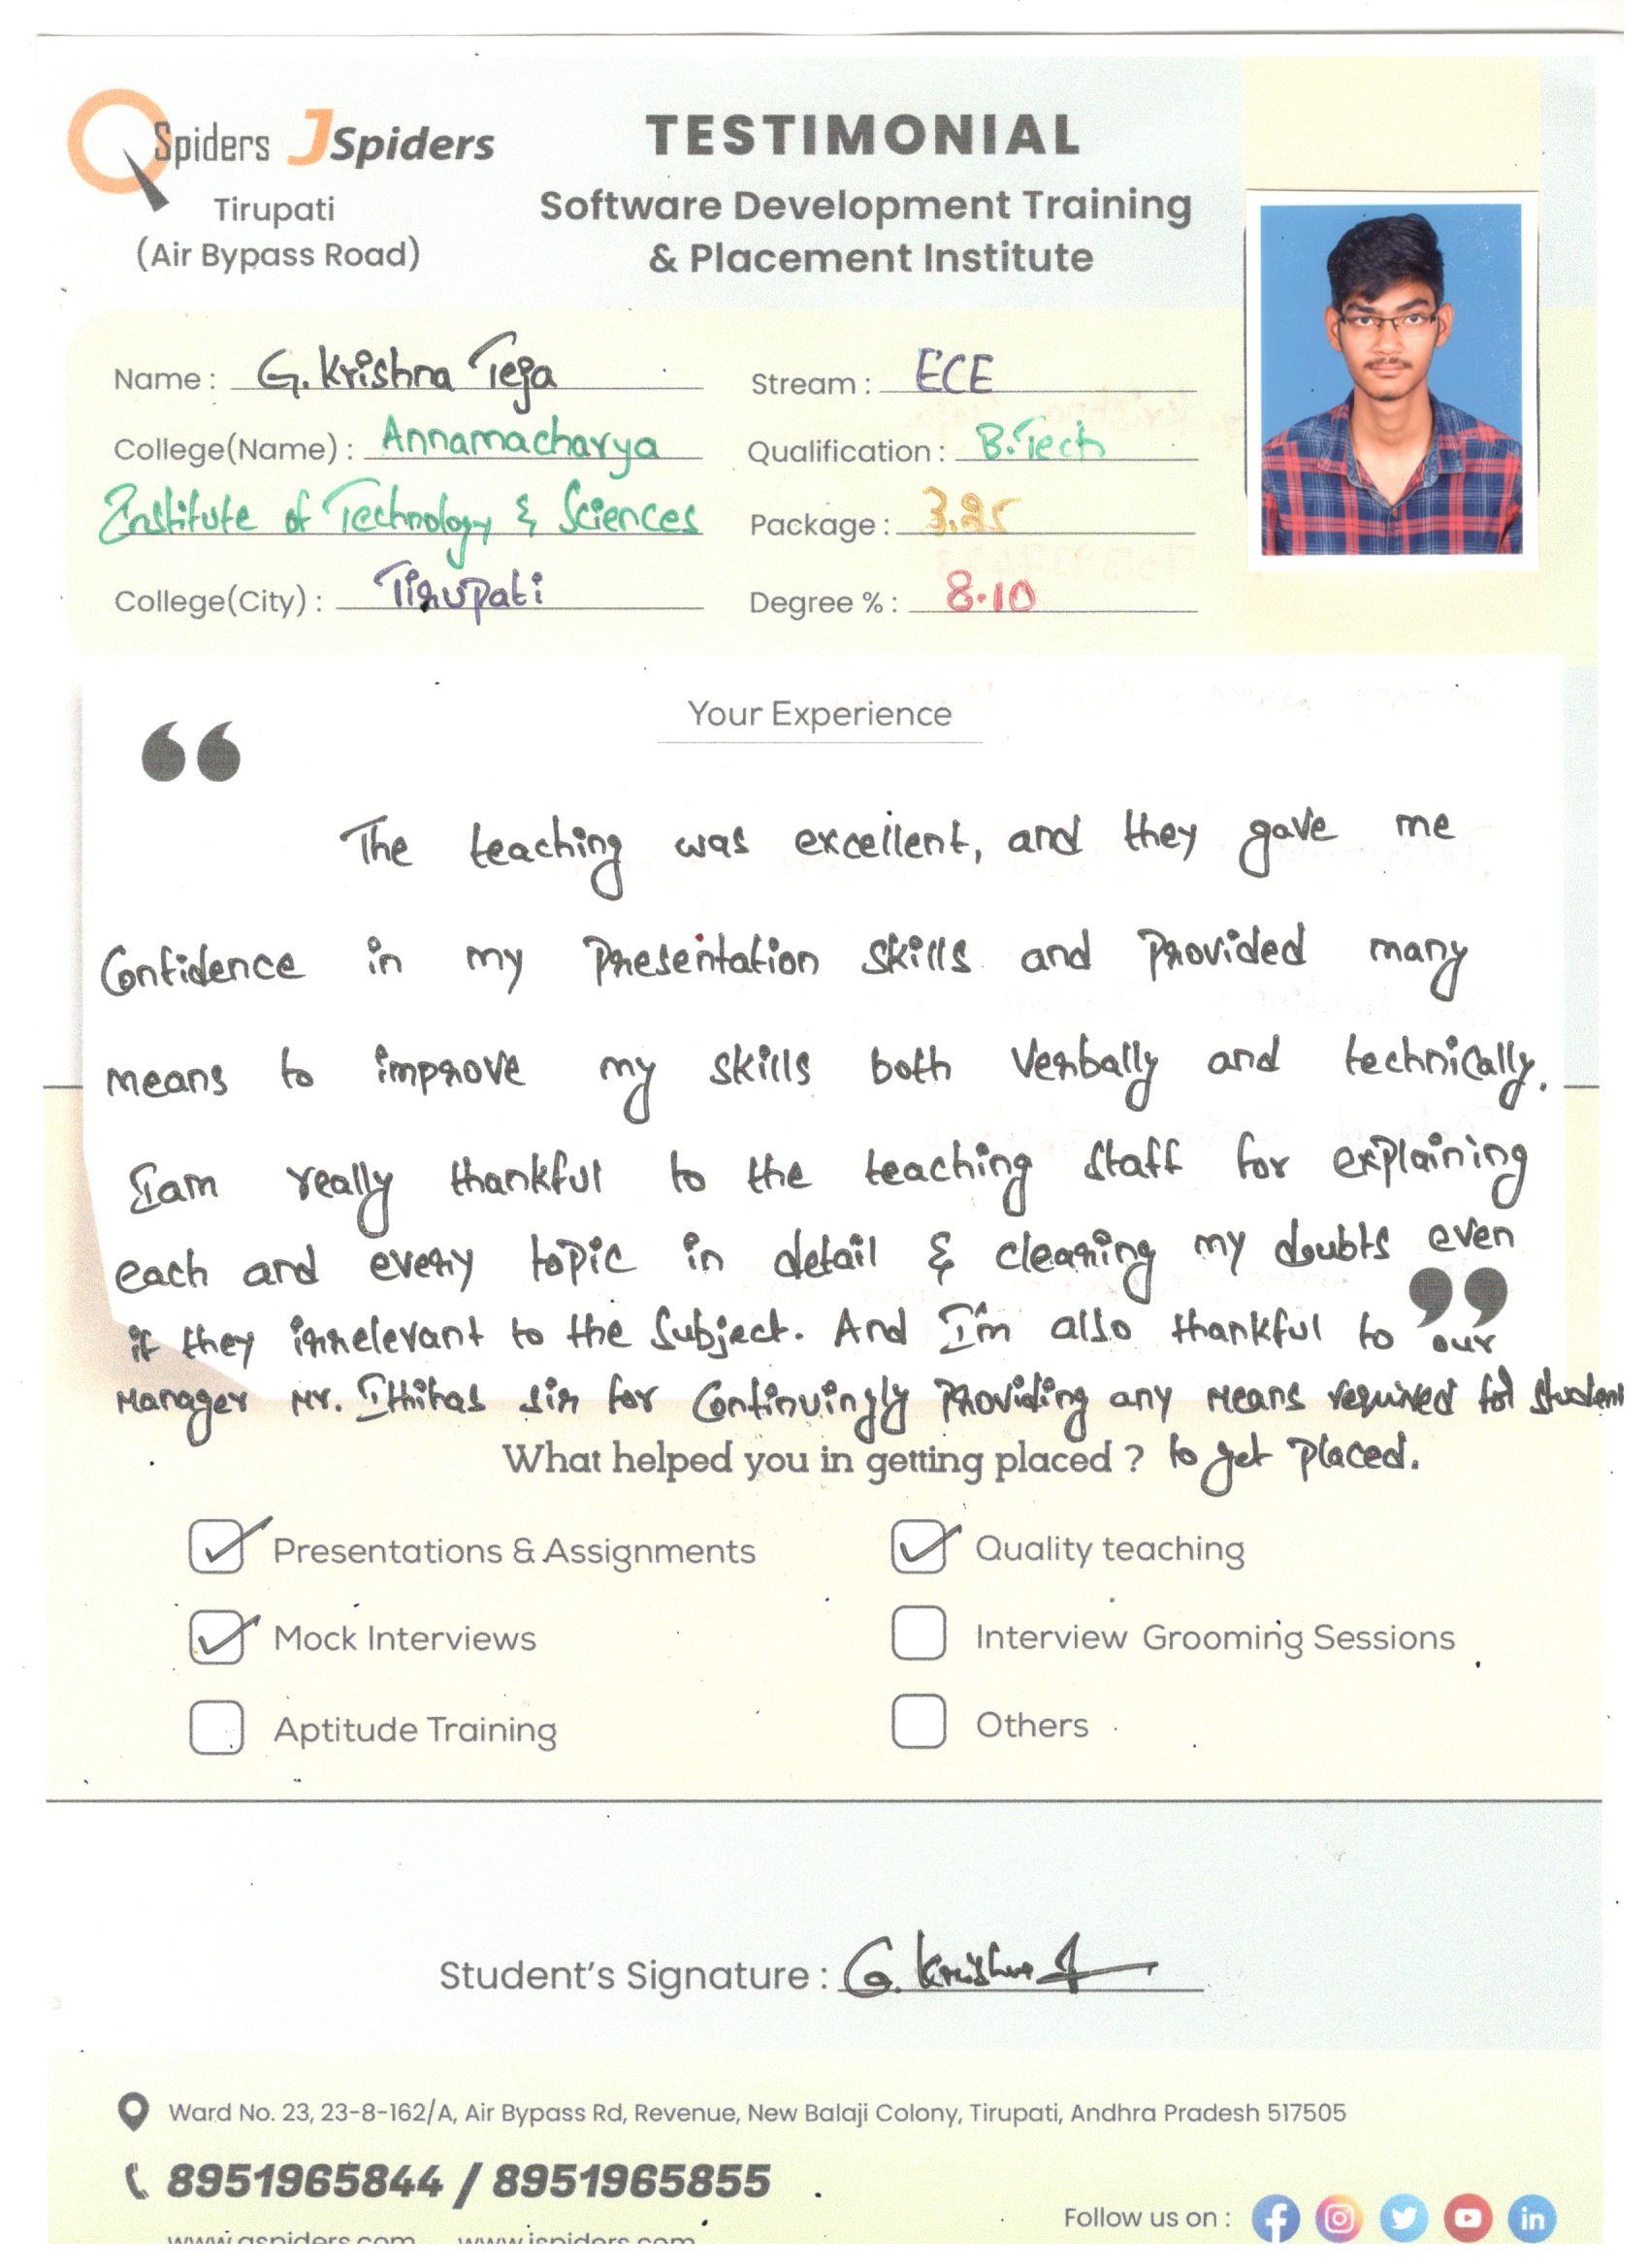 QSpiders JSpiders
Tirupati
(Air Bypass Road)
TESTIMONIAL
Software Development Training
& Placement Institute
Name : G. Krishna Teja
Stream : ECE
College(Name) : Annamacharya
Qualification : B.Tech
Institute of Technology & Sciences
Package : 3.25
College(City) : Tirupati
Degree % : 8.10
Your Experience
“
The teaching was excellent, and they gave me
Confidence in my Presentation skills and Provided many
means to improve my skills both Verbally and technically.
I am really thankful to the teaching staff for explaining
each and every topic in detail & clearing my doubts even
if they irrelevant to the Subject. And I'm also thankful to our
”
Manager Mr. Ithihas sir for Continuingly Providing any Means required for student
to get Placed.
What helped you in getting placed ?
Presentations & Assignments
Quality teaching
Mock Interviews
Interview Grooming Sessions
Aptitude Training
Others
Student's Signature : G. Krishna
Ward No. 23, 23-8-162/A, Air Bypass Rd, Revenue, New Balaji Colony, Tirupati, Andhra Pradesh 517505
8951965844 / 8951965855
Follow us on :
www.qspiders.com www.jspiders.com